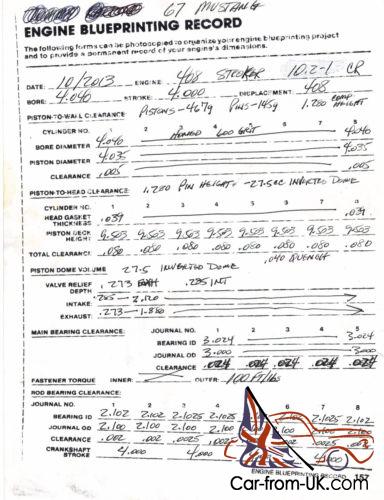 67 MUSTANG
ENGINE BLUEPRINTING RECORD
The following forms can be photocopied to organize your engine blueprinting project
and to provide a permanent record of your engine's dimensions.
DATE: 10/2013 ENGINE: 408 STROKER 10.2-1 CR
BORE: 4.040 STROKE: 4.000 DISPLACEMENT: 408
PISTON-TO-WALL CLEARANCE: PISTONS-467g PINS-145g 1.280 COMP HEIGHT
CYLINDER NO. 1 2 3 4 5 6 7 8
BORE DIAMETER 4.040 HONED 600 GRIT 4.040
PISTON DIAMETER 4.035 4.035
CLEARANCE .005 .005
PISTON-TO-HEAD CLEARANCE: 1.280 PIN HEIGHT -27.5cc INVERTED DOME
CYLINDER NO. 1 2 3 4 5 6 7 8
HEAD GASKET THICKNESS .039 .039
PISTON DECK HEIGHT 9.503 9.503 9.503 9.503 9.503 9.503 9.503 9.503
TOTAL CLEARANCE: .080 .080 .080 .080 .080 .080 .080
.040 QUENCH
PISTON DOME VOLUME 27.5 INVERTED DOME
VALVE RELIEF DEPTH .273 EXH .285 INT
INTAKE: .285 - 2.120
EXHAUST: .273 - 1.880
MAIN BEARING CLEARANCE: JOURNAL NO. 1 2 3 4 5
BEARING ID 3.024 3.024
JOURNAL OD 3.000 3.000
CLEARANCE .024 .024 .024 .024 .024
FASTENER TORQUE INNER: OUTER: 100 FT/lbs
ROD BEARING CLEARANCE:
JOURNAL NO. 1 2 3 4 5 6 7 8
BEARING ID 2.102 2.102 2.1025 2.1025 2.102 2.102 2.1025 2.102
JOURNAL OD 2.100 2.100 2.100 2.100 2.100
CLEARANCE .002 .002 .0025 .0025 .002
CRANKSHAFT STROKE 4.000 4.000 4.000
ENGINE BLUEPRINTING RECORD 157
Car-from-UK.com